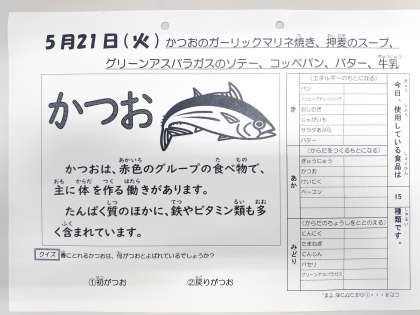 5月21日(火) かつおのガーリックマリネ焼き、押麦のスープ、
グリーンアスパラガスのソテー、コッペパン、バター、牛乳
かつお
かつおは、赤色のグループの食べ物で、
主に体を作る働きがあります。
たんぱく質のほかに、鉄やビタミン類も多
く含まれています。
クイズ 春にとれるかつおは、何がつおとよばれているでしょうか?
①初がつお ②戻りがつお
今日、使用している食品は 15 種類です。
き
(エネルギーのもとになる)
パン
おしむぎ
じゃがいも
サラダあぶら
バター
あか
(からだをつくるもとになる)
ぎゅうにゅう
かつお
ベーコン
みどり
(からだのちょうしをととのえる)
にんにく
たまねぎ
にんじん
パセリ
グリーンアスパラガス